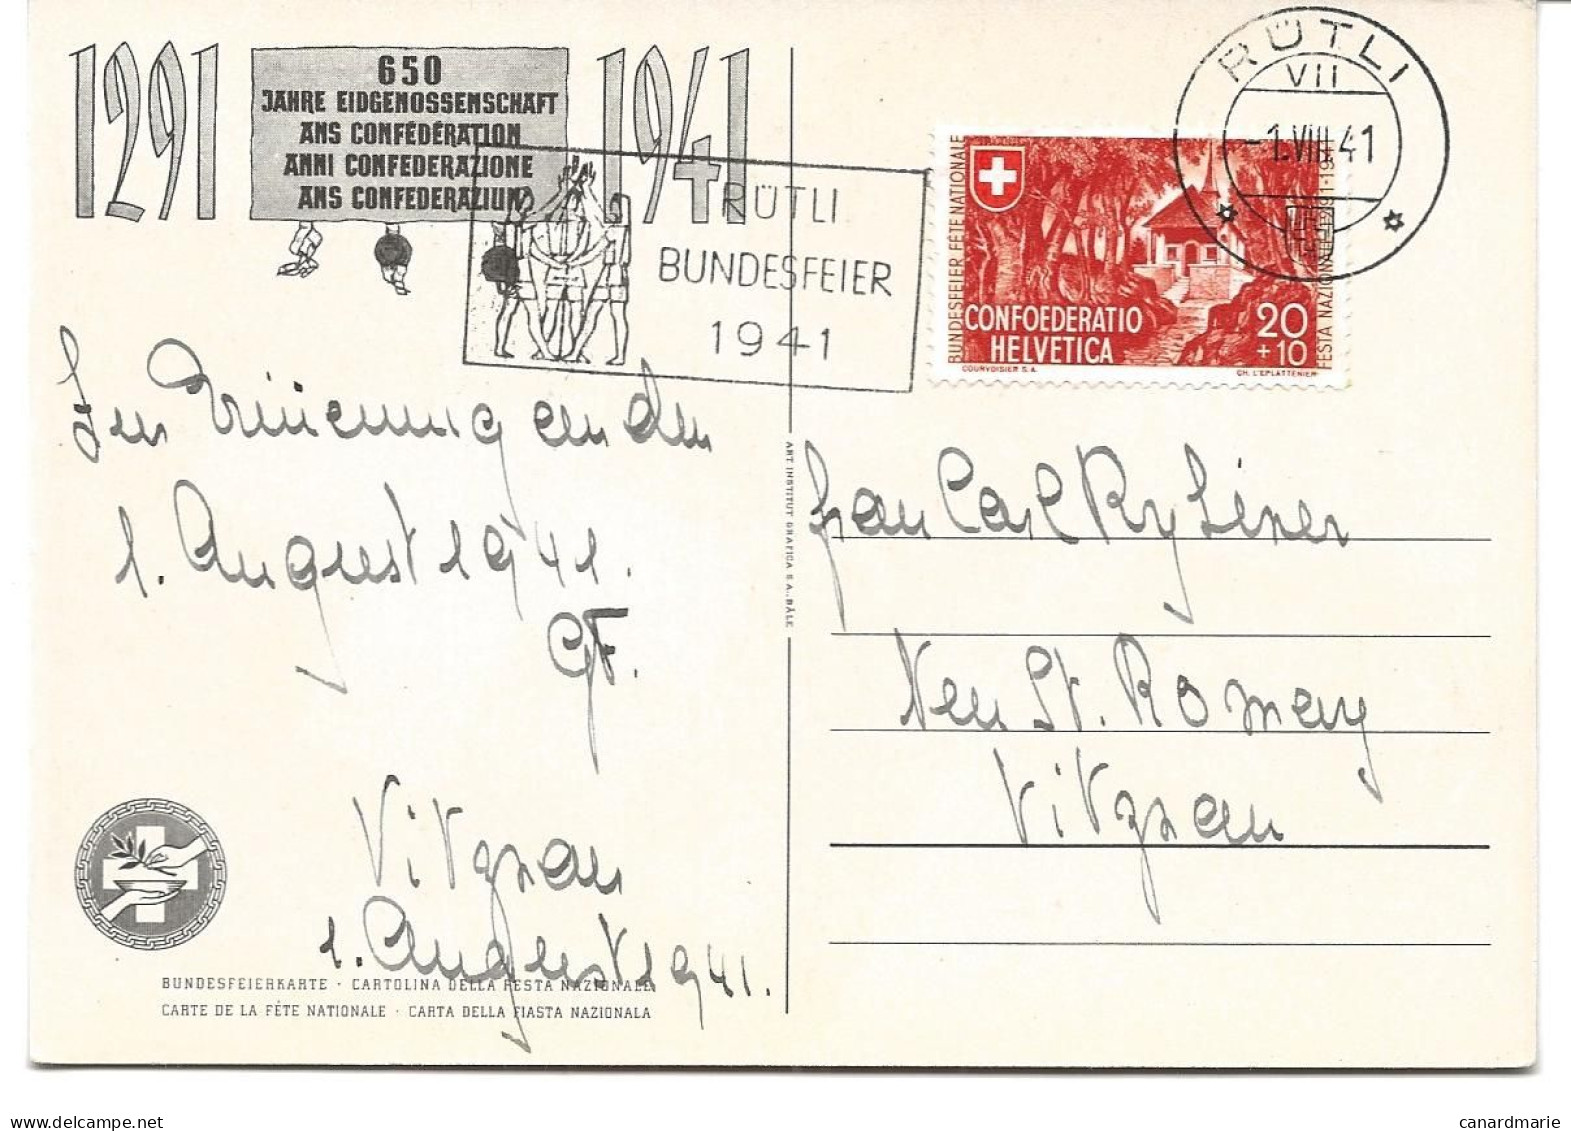 1291
650
JAHRE EIDGENOSSENSCHAFT
ANS CONFÉDÉRATION
ANNI CONFEDERAZIONE
ANS CONFEDERAZIUN
1941
RÜTLI
BUNDESFEIER
1941
RÜTLI
VII
-1.VIII.41
BUNDESFEIER FÊTE NATIONALE
CONFOEDERATIO
HELVETICA
20
+10
FESTA NAZIONALE 1291-1941
COURVOISIER S.A.
CH. L'EPLATTENIER
Zur Erinnerung an den
1. August 1941.
GF.
Vitznau
1. August 1941.
BUNDESFEIERKARTE · CARTOLINA DELLA FESTA NAZIONALE
CARTE DE LA FÊTE NATIONALE · CARTA DELLA FIASTA NAZIONALA
ART INSTITUT GRAFICA S.A., BÂLE
Frau Carl Ryhiner
Neu St.
Vitznau
delcampe.net
canardmarie